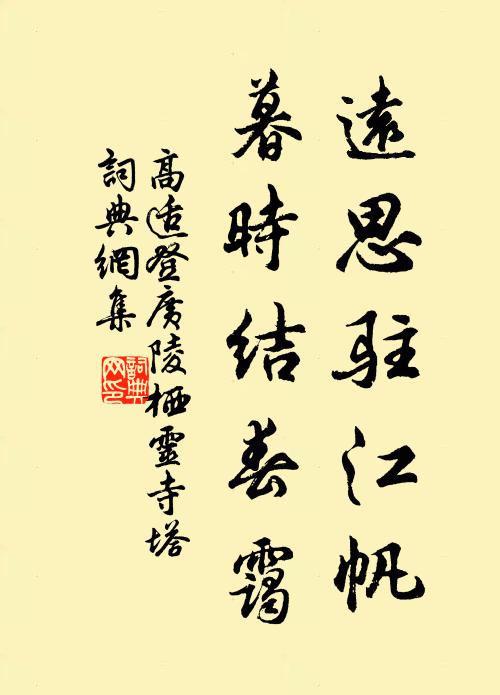 遠思駐江帆
暮時結春靄
高適登廣陵栖靈寺塔
詞典網集
詞典網印